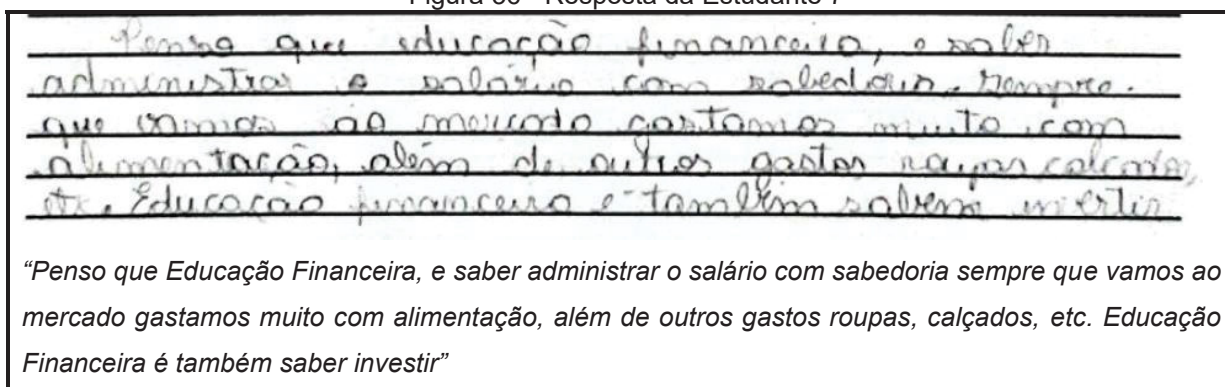 Penso que educação financeira, e saber
administrar o salário com sabedoria. Sempre.
que vamos ao mercado gastamos muito com
alimentação, além de outros gastos roupas calçados,
etc. Educação financeira e tambem sabem invertir
“Penso que Educação Financeira, e saber administrar o salário com sabedoria sempre que vamos ao
mercado gastamos muito com alimentação, além de outros gastos roupas, calçados, etc. Educação
Financeira é também saber investir”